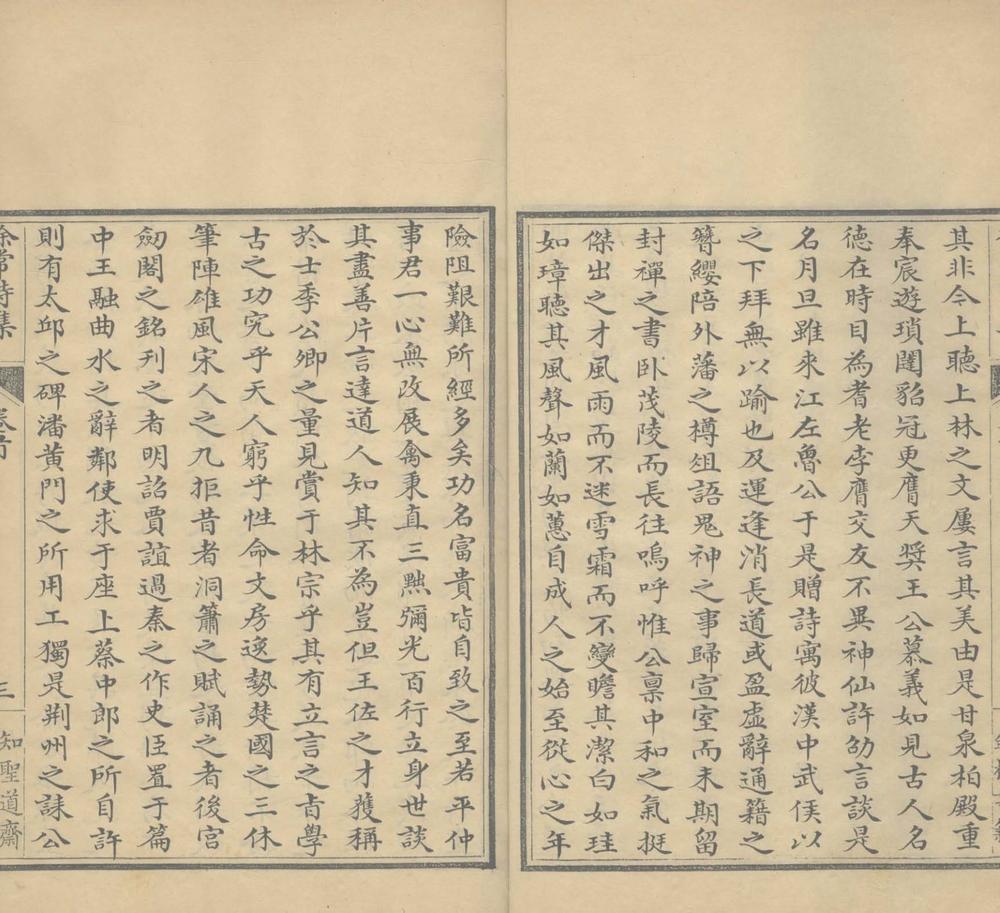 其非今上聽上林之文屢言其美由是甘泉柏殿重
奉宸遊瑣闥貂冠更膺天奬王公慕義如見古人名
德在時目為耆老李膺交友不異神仙許劭言談是
名月旦雖來江左魯公于是贈詩寓彼漢中武侯以
之下拜無以踰也及運逢消長道或盈虛辭通籍之
簪纓陪外藩之樽俎語鬼神之事歸宣室而未期留
封禪之書卧茂陵而長往嗚呼惟公禀中和之氣挺
傑出之才風雨而不迷雪霜而不變瞻其潔白如珪
如璋聽其風聲如蘭如蕙自成人之始至從心之年
險阻艱難所經多矣功名富貴皆自致之至若平仲
事君一心無改展禽秉直三黜彌光百行立身世談
其盡善片言達道人知其不為豈但王佐之才獲稱
於士季公卿之量見賞于林宗乎其有立言之旨學
古之功究乎天人窮乎性命文房逸勢楚國之三休
筆陣雄風宋人之九拒昔者洞簫之賦誦之者後宫
劒閣之銘刋之者明詔賈誼過秦之作史臣置于篇
中王融曲水之辭鄰使求于座上蔡中郎之所自許
則有太邱之碑潘黄門之所用工獨是荆州之誄公
徐常侍集
三
知聖道齋